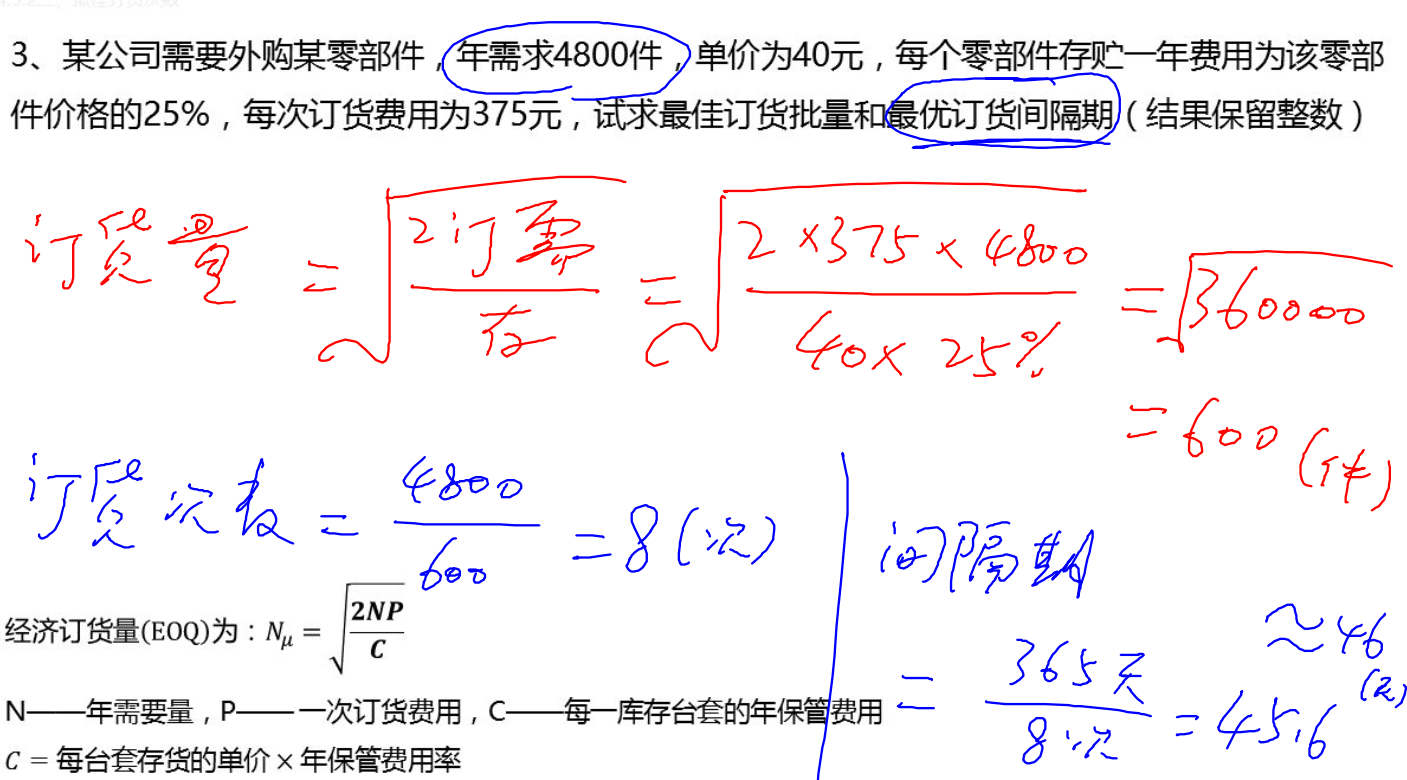 3、某公司需要外购某零部件，年需求4800件，单价为40元，每个零部件存贮一年费用为该零部
件价格的25%，每次订货费用为375元，试求最佳订货批量和最优订货间隔期（结果保留整数）
订货量 = √(2订需/存) = √(2×375×4800/40×25%) = √360000
= 600 (件)
订货次数 = 4800/600 = 8 (次)
间隔期
= 365天/8次 = 45.6
≈46 (天)
经济订货量(EOQ)为：Nμ = √(2NP/C)
N——年需要量，P—— 一次订货费用，C——每一库存台套的年保管费用
C = 每台套存货的单价 × 年保管费用率